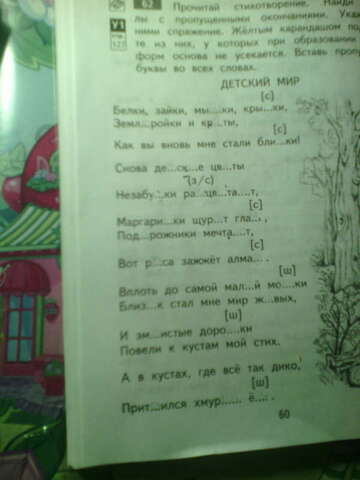 62 Прочитай стихотворение. Найди
лы с пропущенными окончаниями. Ука
ними спряжение. Жёлтым карандашом под
те из них, у которых при образовании
форм основа не усекается. Вставь проп
буквы во всех словах.
У1
ДЕТСКИЙ МИР
[с]
Белки, зайки, мы...ки, кры...ки,
Земл...ройки и кр...ты,
[с]
Как вы вновь мне стали бли...ки!
Снова де...ск...е цв...ты
(з/с)
Незабу...ки ра...цв...та...т,
[с]
Маргари...ки щур...т гла...,
Под...рожники мечта...т,
[с]
Вот р...са зажжёт алма... .
[ш]
Вплоть до самой мал...й мо...ки
Близ...к стал мне мир ж...вых,
[ш]
И зм...истые доро...ки
Повели к кустам мой стих.
А в кустах, где всё так дико,
[ш]
Прит...ился хмур...... ё... .
60